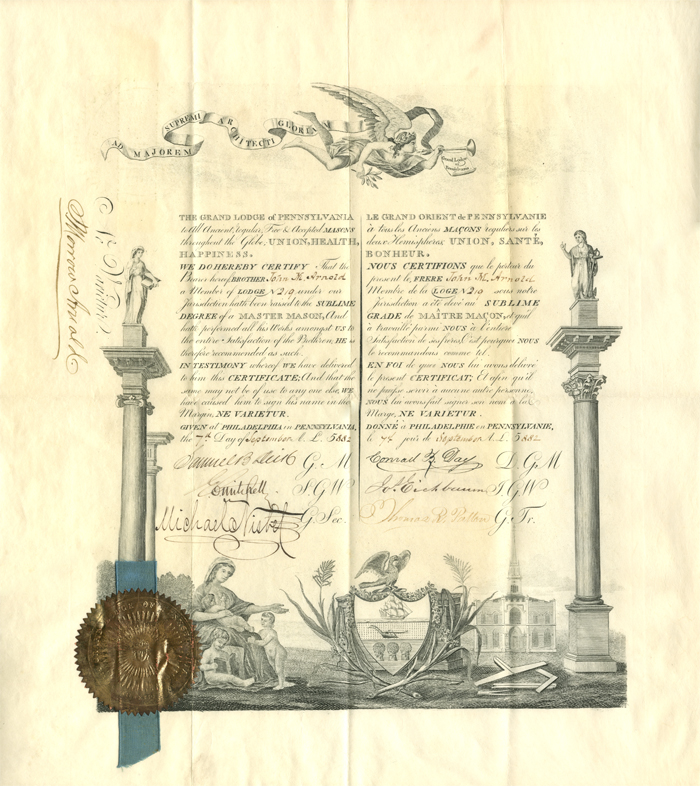 AD MAJOREM SUPREMI ARCHITECTI GLORIA
Grand Lodge of Pennsylvania
THE GRAND LODGE of PENNSYLVANIA
to All Ancient, regular, Free & Accepted MASONS
throughout the Globe, UNION, HEALTH,
HAPPINESS.
WE DO HEREBY CERTIFY That the
Bearer hereof BROTHER John H. Arnold
a Member of LODGE N 219 under our
Jurisdiction hath been raised to the SUBLIME
DEGREE of a MASTER MASON, And
hath performed all his Works amongst US to
the entire Satisfaction of the Brethren, HE is
therefore recommended as such.
IN TESTIMONY whereof WE have delivered
to him this CERTIFICATE; And that the
same may not be of use to any one else, WE
have caused him to sign his name in the
Margin, NE VARIETUR.
GIVEN at PHILADELPHIA in PENNSYLVANIA,
the 7th Day of September A. L. 5882
Samuel B Dick G. M
E Mitchell S. G W
Michael Nisbet G. Sec.
LE GRAND ORIENT de PENNSYLVANIE
à tous les Anciens MAÇONS reguliers sur les
deux Hemispheres UNION, SANTÉ,
BONHEUR.
NOUS CERTIFIONS que le porteur du
present le, FRERE John H. Arnold
Membre de la LOGE N 219 sous notre
Jurisdiction a été élevé au SUBLIME
GRADE de MAÎTRE MAÇON, et qu'il
à travaillé parmi NOUS à l'entiere
Satisfaction de ses freres, C'est pourquoi NOUS
le recommandons comme tel.
EN FOI de quoi NOUS lui avons delivré
le present CERTIFICAT; Et afin qu'il
ne puisse servir a aucune autre personne,
NOUS lui avons fait signer son nom a la
Marge, NE VARIETUR.
DONNÉ à PHILADELPHIE en PENNSYLVANIE,
le 7e jour de September A. L. 5882
Conrad B. Day D. G M
Jos. Eichbaum J. G W
Thomas R. Patton G. Tr.
Ne Varietur
Arnold